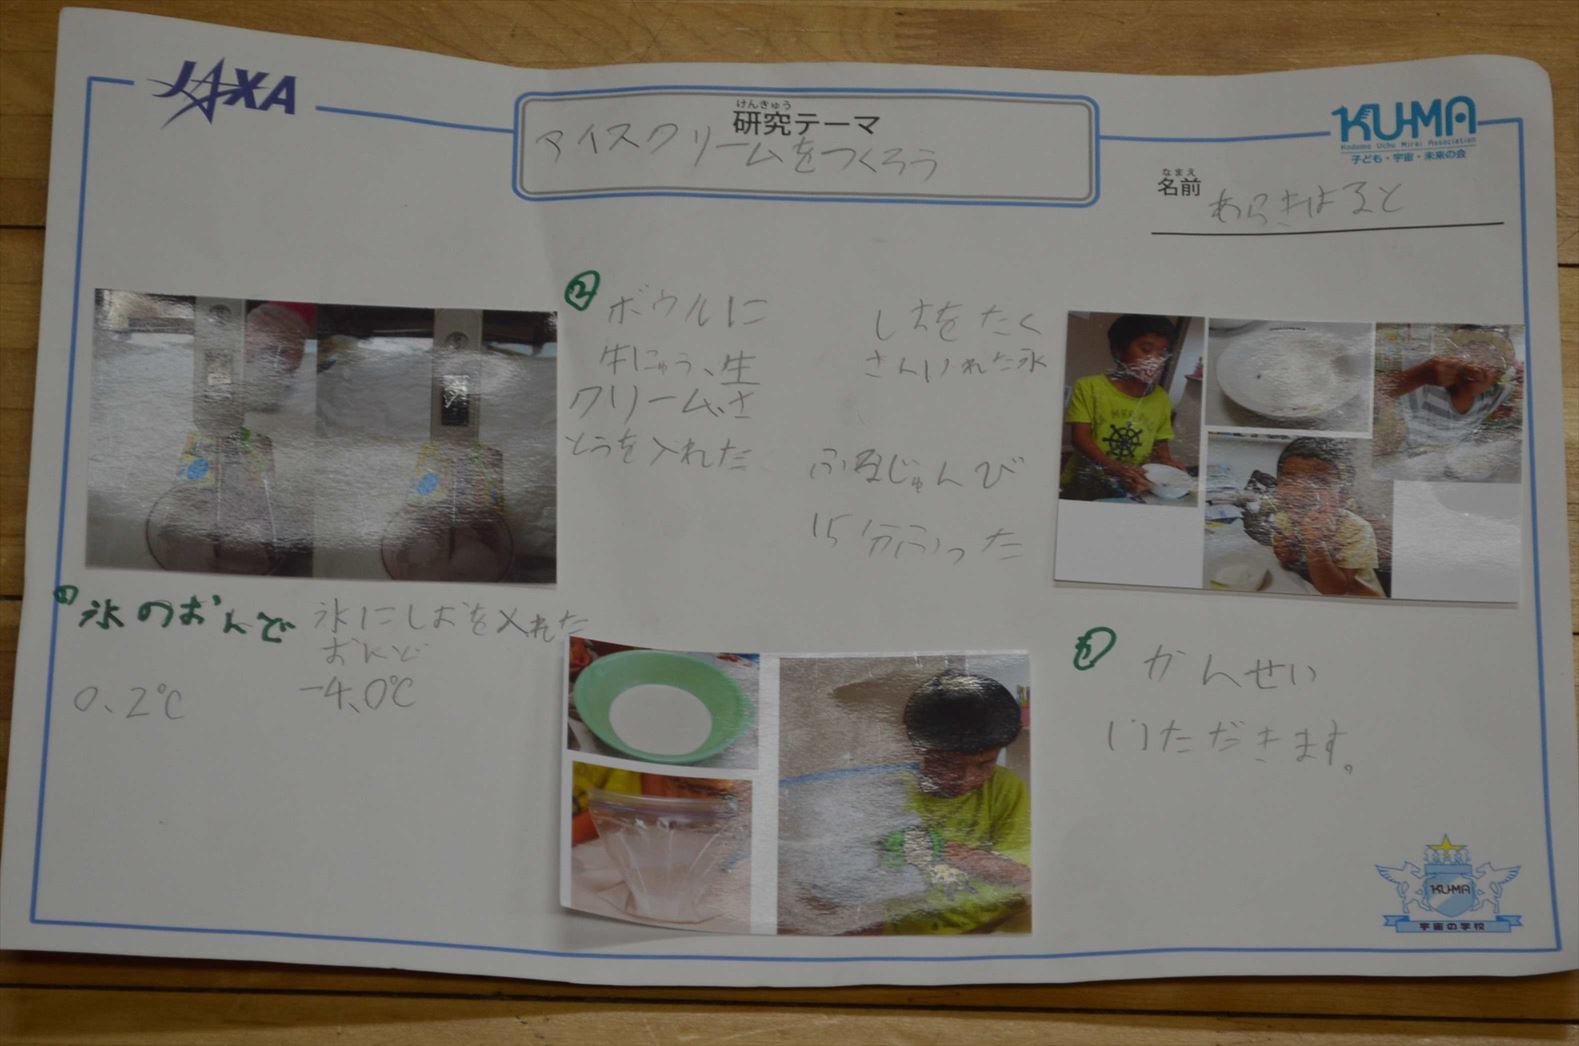 JAXA
けんきゅう
研究テーマ
アイスクリームをつくろう
KU-MA
Kodomo Uchu Mirai Association
子ども・宇宙・未来の会
なまえ
名前
あらきはると
①氷のおんど
0.2℃
氷にしおを入れた
おんど
-4.0℃
②ボウルに
牛にゅう、生
クリーム、さ
とうを入れた
しおをたく
さんいれた氷
ふるじゅんび
15分ふった
かんせい
いただきます。
KU-MA
宇宙の学校